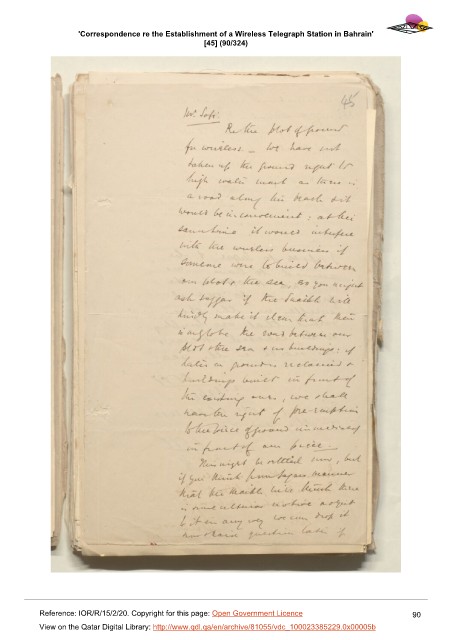 'Correspondence re the Establishment of a Wireless Telegraph Station in Bahrain'
[45] (90/324)
45
Re the plot of ground
for wireless - We have not
taken up the ground right to
high water mark as there is
a road along the beach & it
would be inconvenient; at the
same time it would interfere
with the wireless business if
someone were to build between
our plot & the sea. So you might
ask if the Shaikh will
kindly make it clear that there
is only to be the road between our
plot & the sea & no buildings: if
later on ground is reclaimed &
buildings built in front of
the existing ones, we shall
have the right of pre-emption
to the piece of ground
in front of our
This might be settled now, but
if you think from manner
that the Shaikh will think there
is some ulterior motive
to it in any way we can drop it
question later if
Reference: IOR/R/15/2/20. Copyright for this page: Open Government Licence
90
View on the Qatar Digital Library: http://www.qdl.qa/en/archive/81055/vdc_100023385229.0x00005b